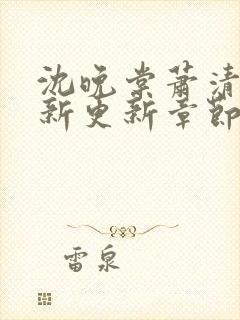 沈晚棠萧清
新更新章节
雷泉